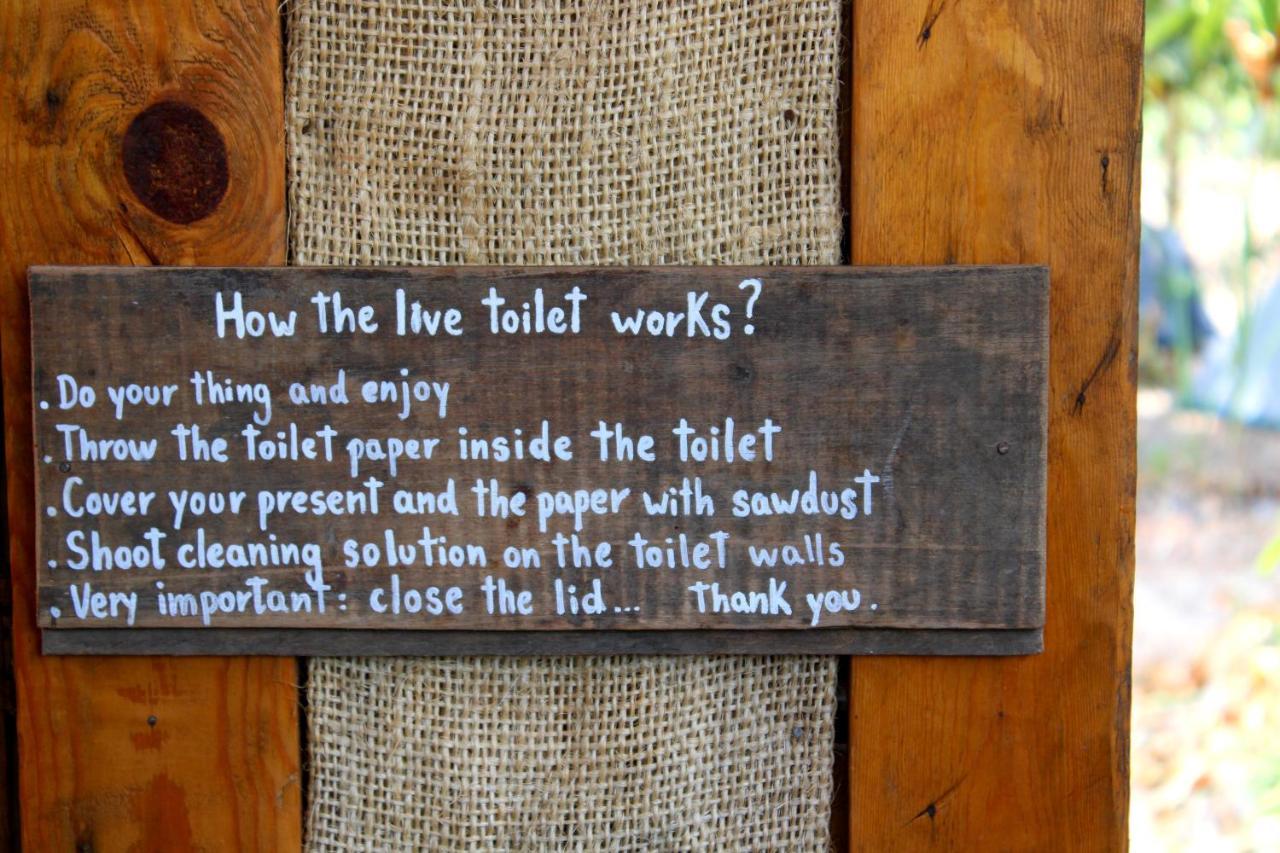 How the live toilet works?
. Do your thing and enjoy
. Throw the toilet paper inside the toilet
. Cover your present and the paper with sawdust
. Shoot cleaning solution on the toilet walls
. Very important: close the lid... Thank you.